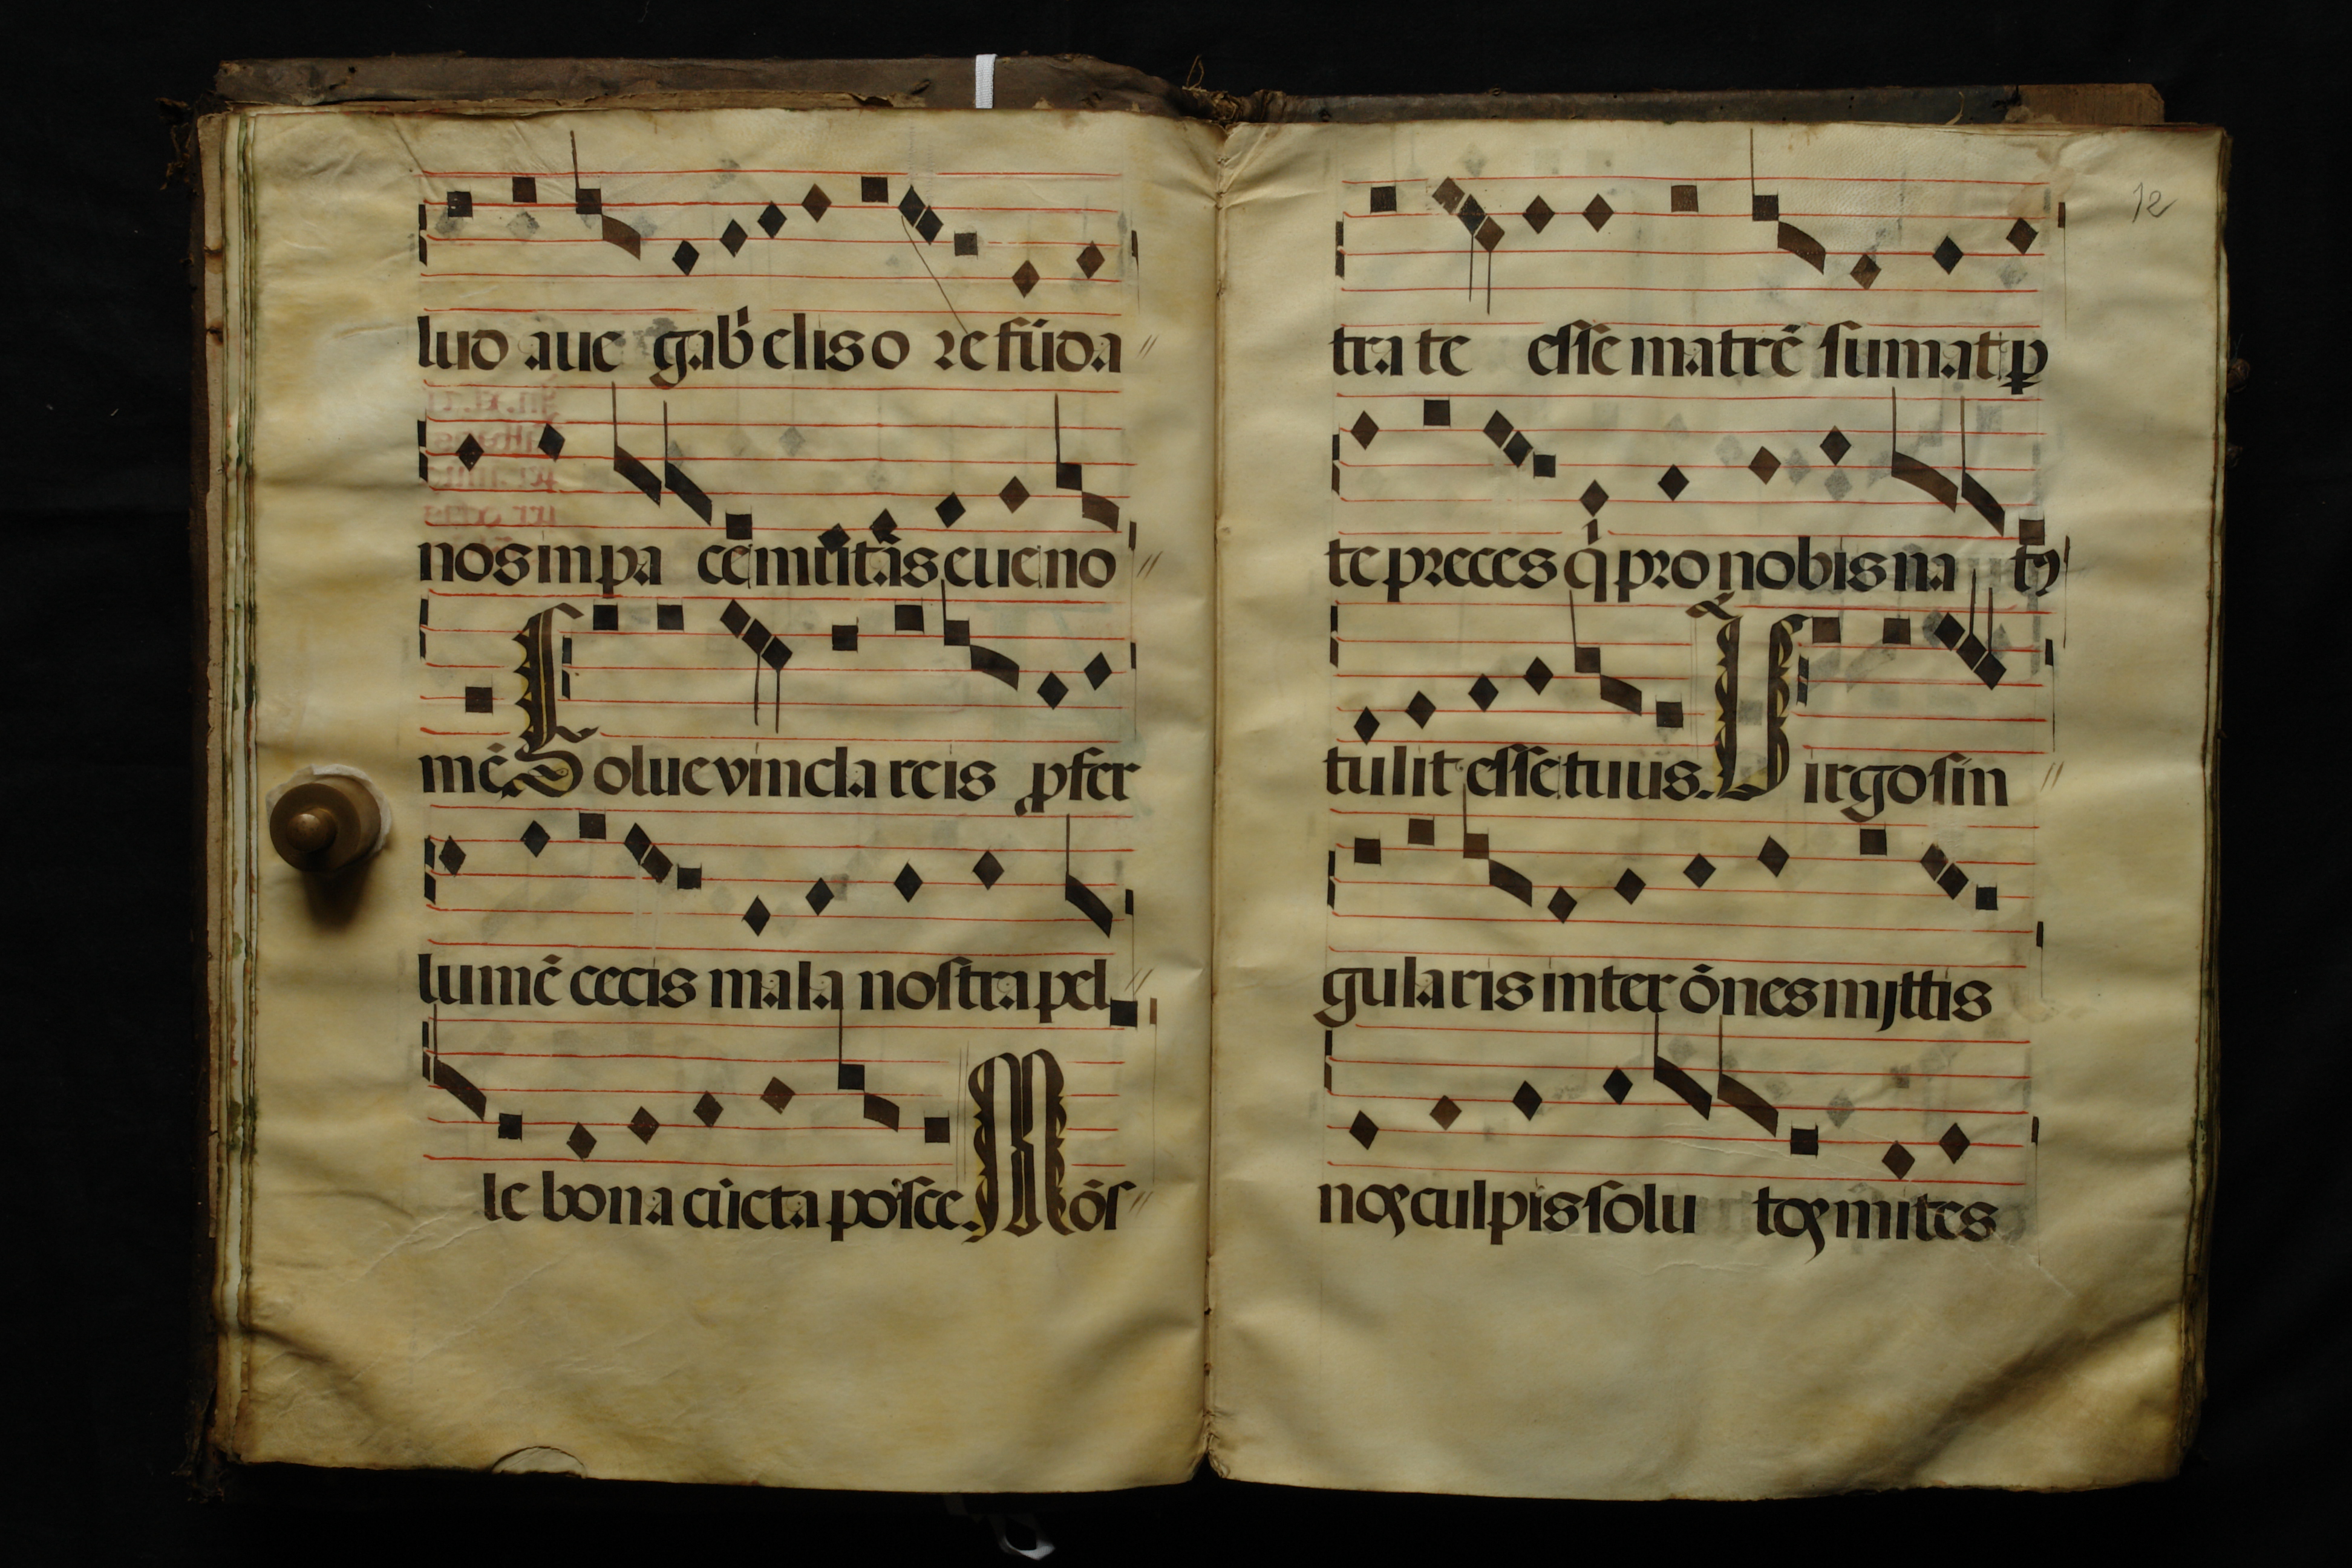 lud aue gab̄elis o re fūda
nos in pa ce mutās eue no
mē. Solue vincla reis ꝓfer
lumē cecis mala nostra pel
le bona cūcta posce. Mōs
12
tra te esse matrē sumat ꝑ
te preces q̄ pro nobis na tꝰ
tulit esse tuus. Virgo sin
gularis inter ōnes mittis
nos culpis solu tos mites